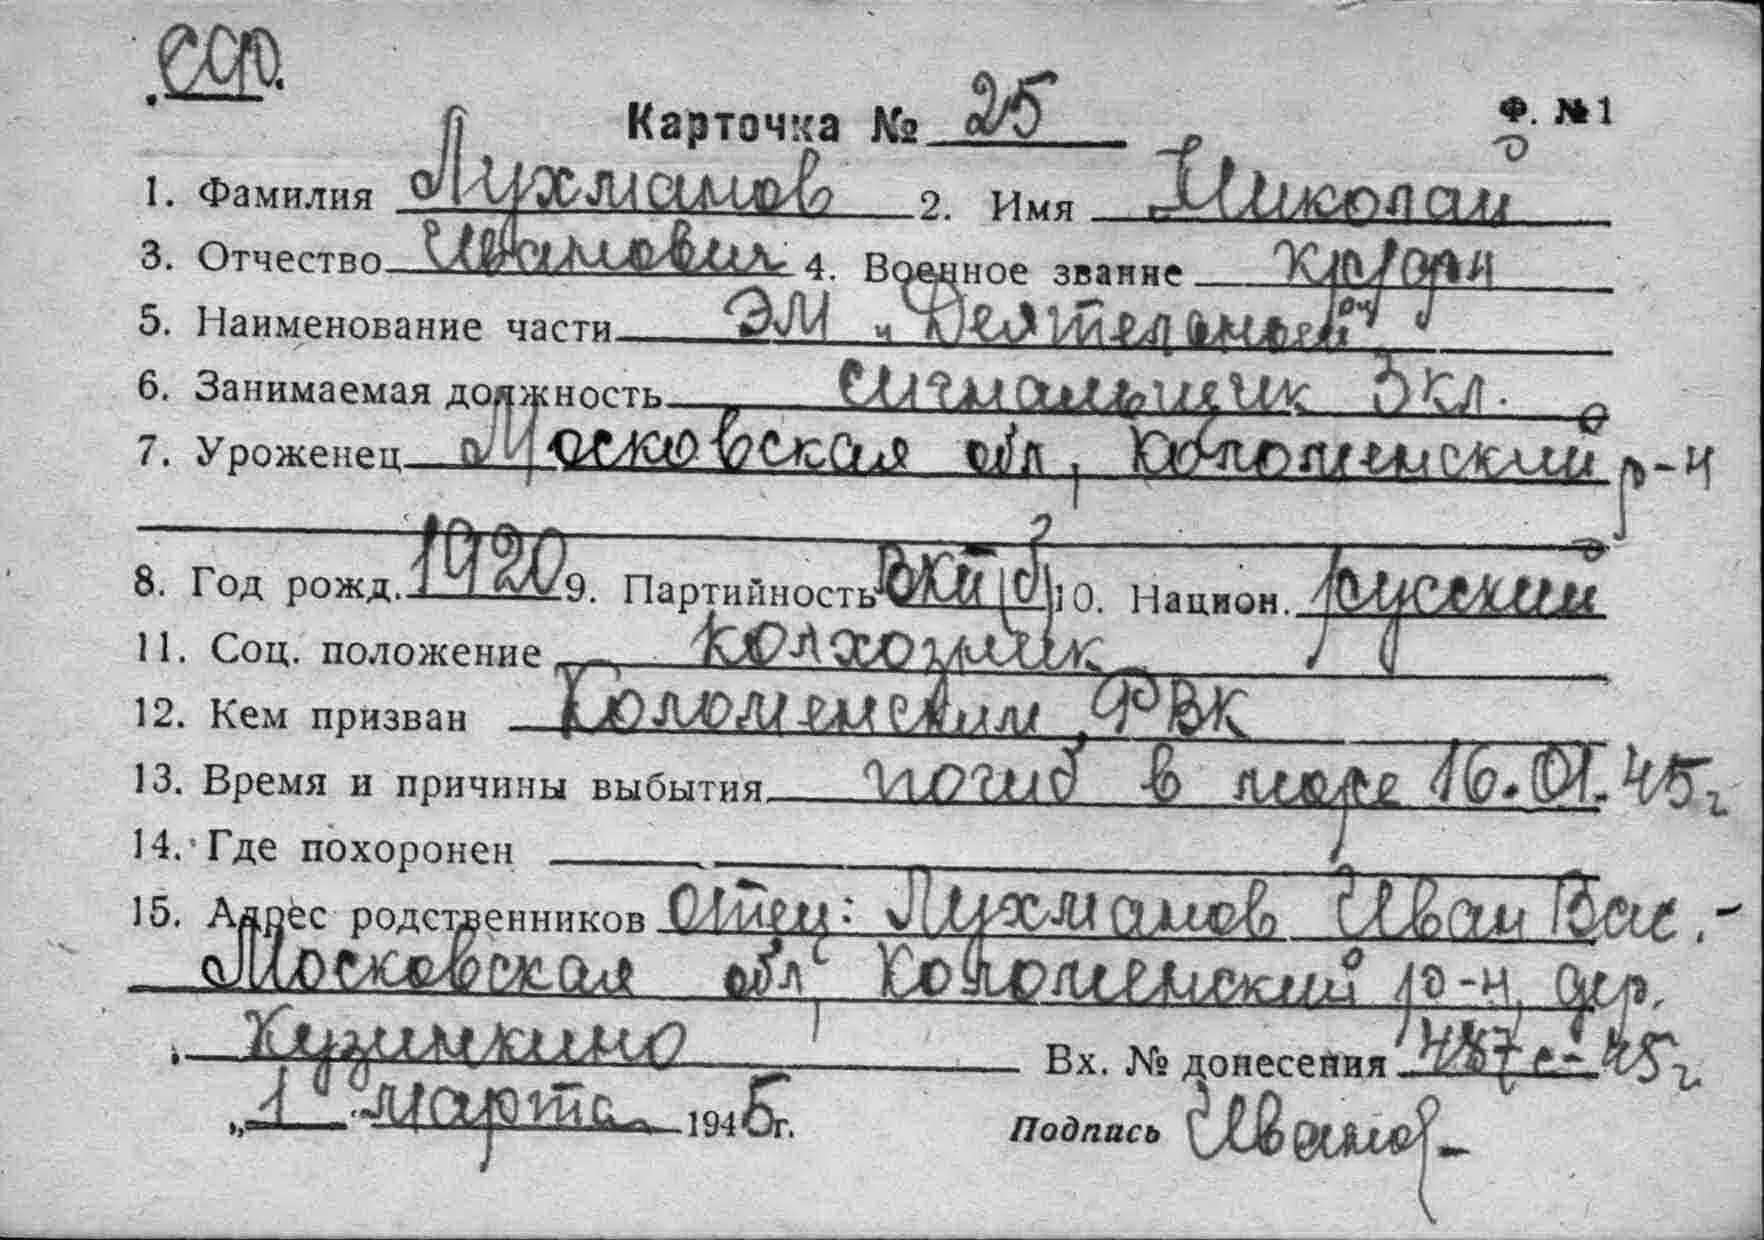 ССФ.
Карточка № 25 Ф. № 1
1. Фамилия Лухманов 2. Имя Николай
3. Отчество Иванович 4. Военное звание кр/фл
5. Наименование части ЭМ "Деятельный"
6. Занимаемая должность сигнальщик 3 кл.
7. Уроженец Московская обл, Коломенский р-н
8. Год рожд. 1920 9. Партийность ВКП(б) 10. Национ. русский
11. Соц. положение колхозник
12. Кем призван Коломенским РВК
13. Время и причины выбытия погиб в море 16.01.45г
14. Где похоронен
15. Адрес родственников отец: Лухманов Иван Вас.-
Московская обл, Коломенский р-н, дер.
Кузимкино Вх. № донесения 487с-45г
„1" марта 1945г. Подпись Иванов